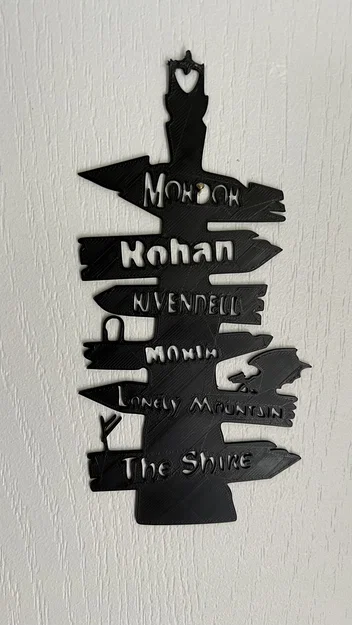 MORDOR
Rohan
RIVENDELL
MORIA
LONELY MOUNTAIN
The Shire